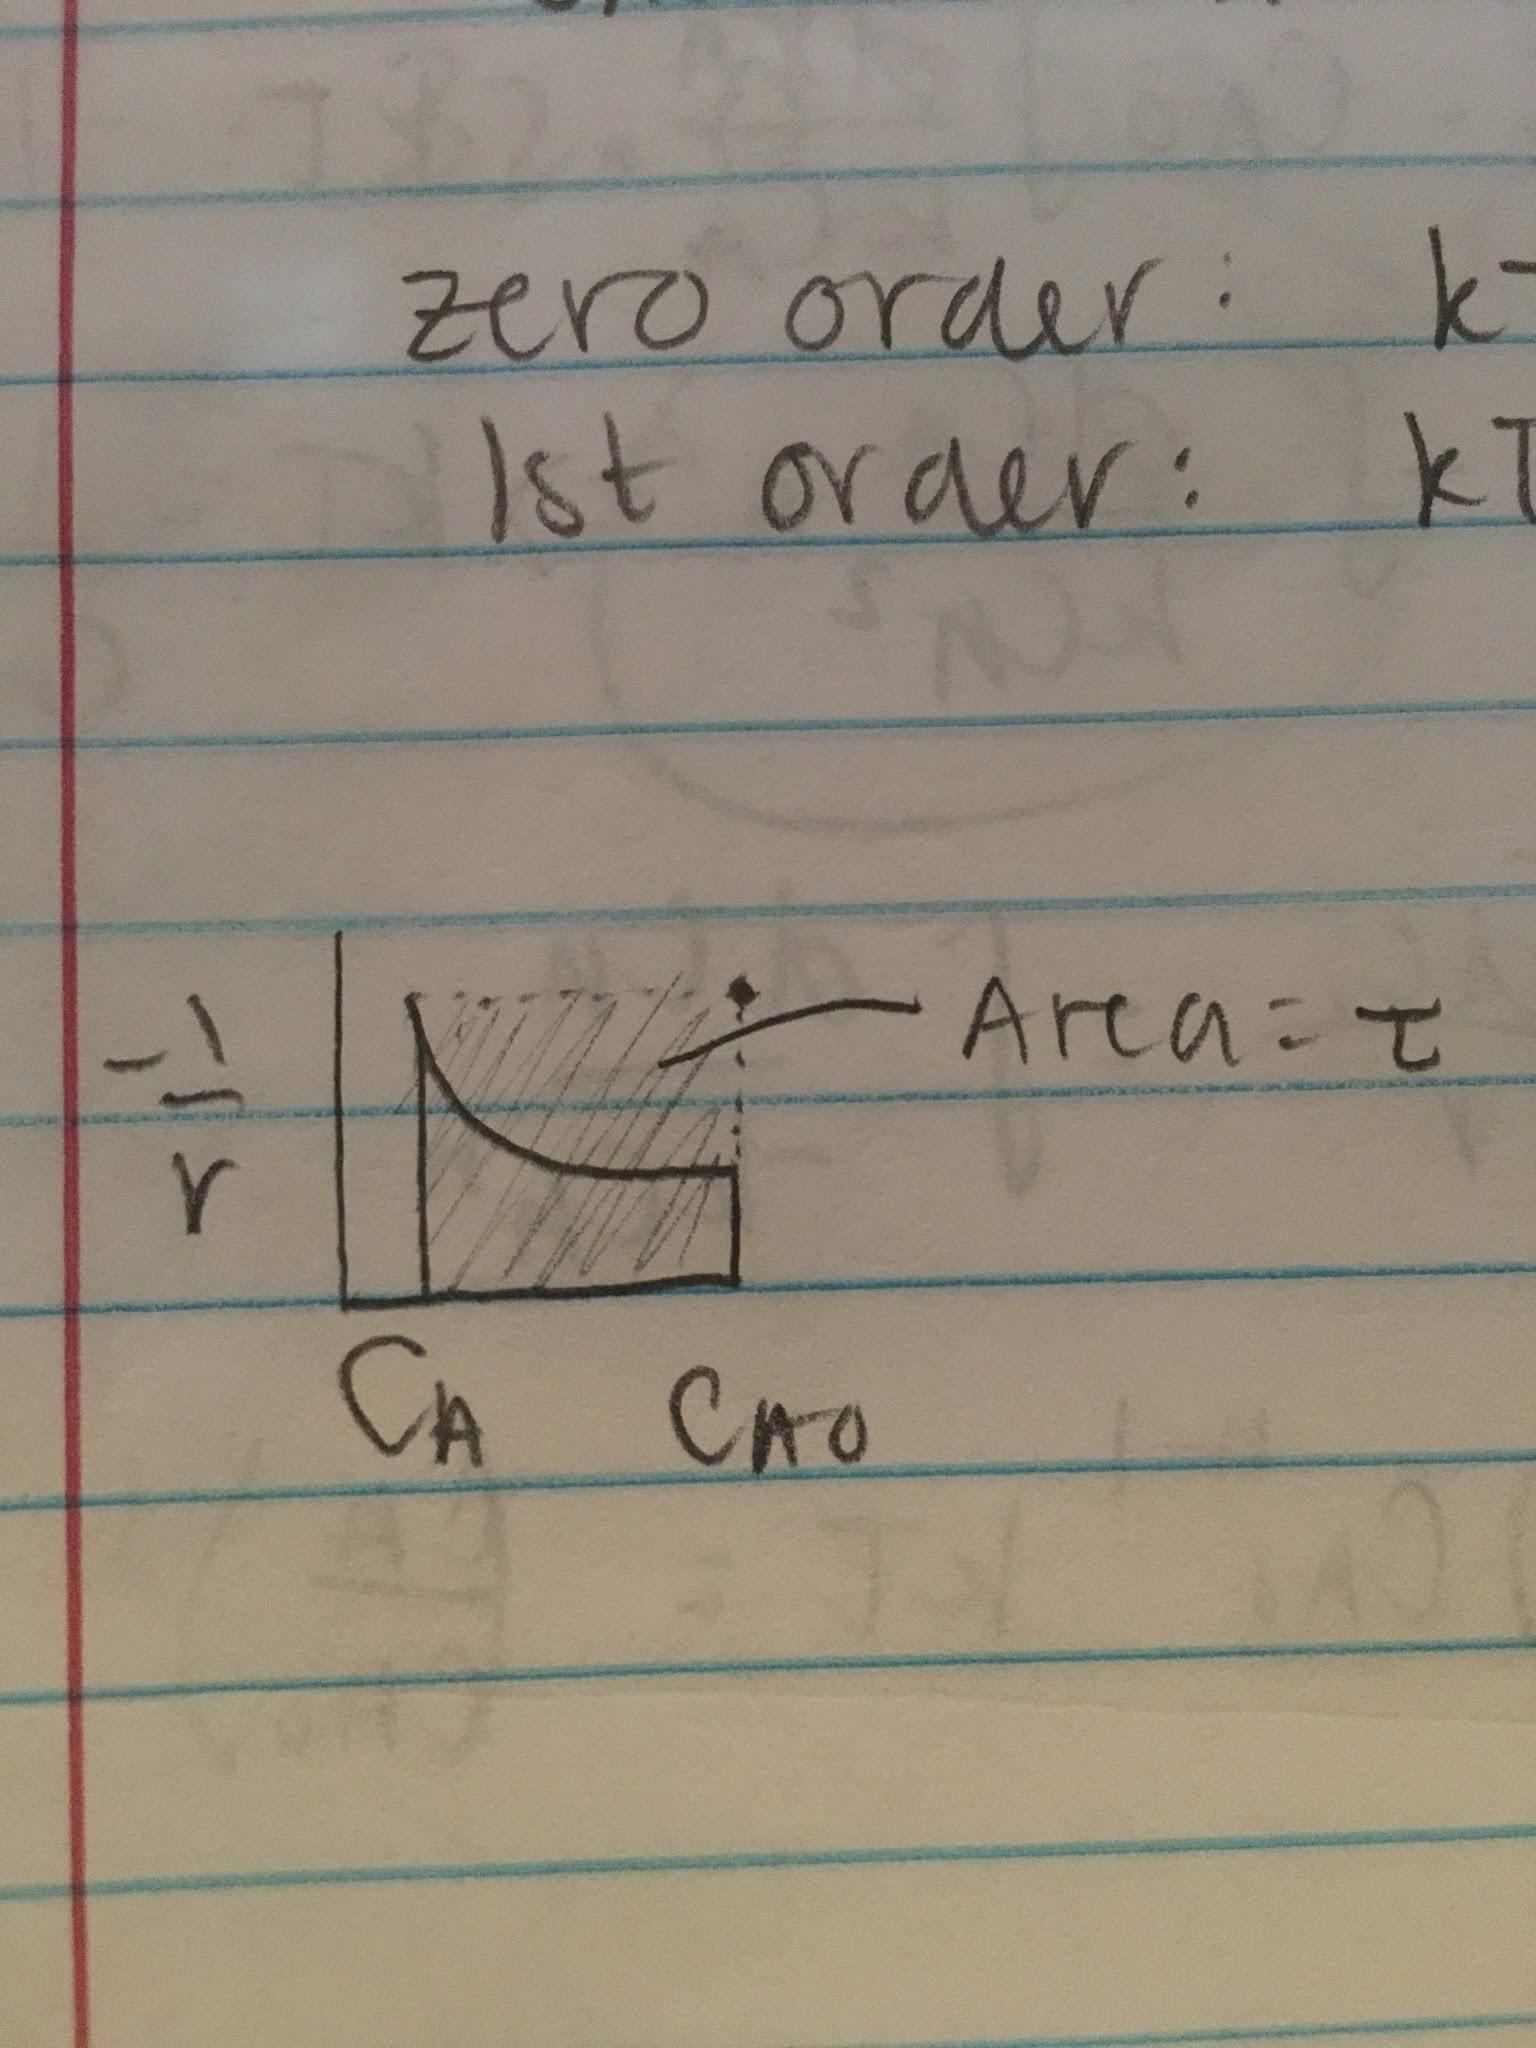 zero order: kτ
1st order: kτ
-1/r
Area = τ
CA CA0